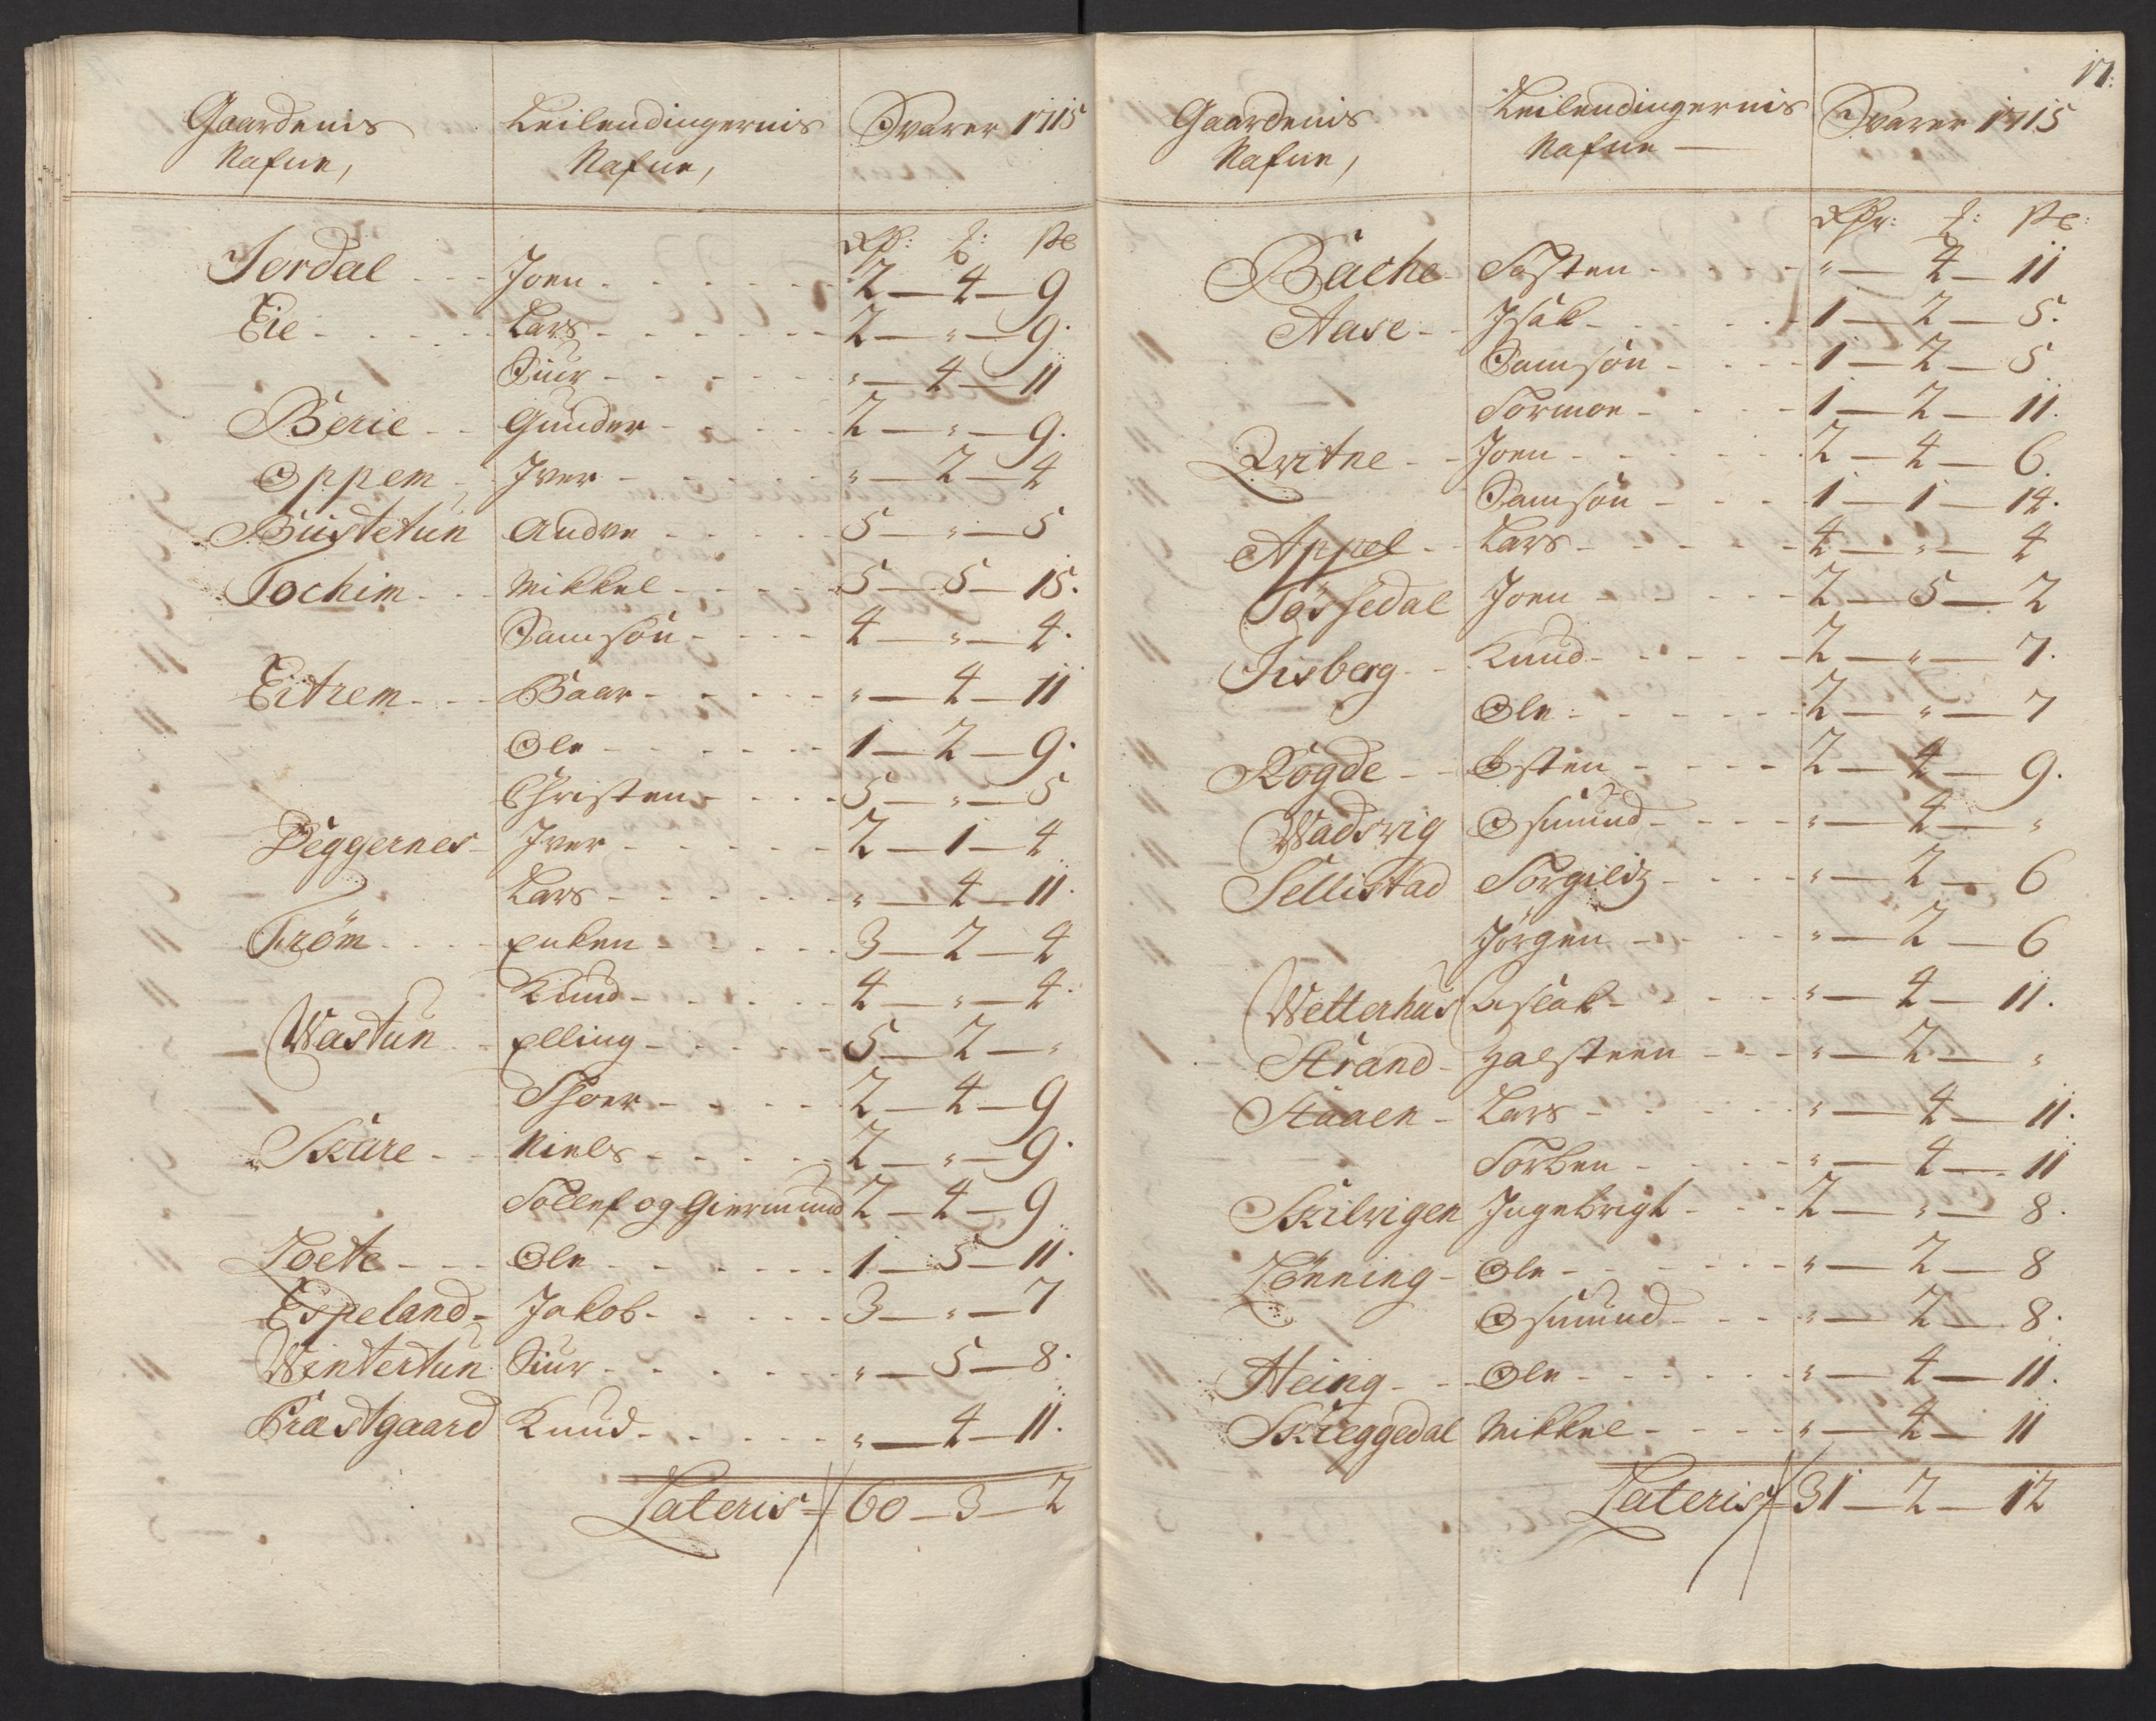 Gaardenis Leilendingernis Svarer 1715
Nafne, Nafne,
Rdr: ƺ: sk
Jordal - - - Joen - - - 2 — 4 — 9
Eie - - - Lars - - - 2 — " — 9.
Siur - - - " — 4 — 11
Berie - - Gunder - - - 2 — " — 9.
Oppem - Iver - - - " — 2 — 4
Büstetün Andve - - - 5 — " — 5
Tochim - - Mikkel - - - 5 — 5 — 15.
Samson - - - 4 — " — 4.
Eitrem - - - Baar - - - " — 4 — 11
Ole - - - 1 — 2 — 9.
Christen - - - 5 — " — 5
Deggernes - Iver - - - 2 — 1 — 4
Lars - - - " — 4 — 11.
Tröm - - - Enken - - - 3 — 2 — 4
Knud - - - 4 — " — 4.
Wastün - - Elling - - - 5 — 2 — "
Thoer - - - 2 — 4 — 9
Skare - - Niels - - - 2 — " — 9.
Tollef og Giermund 2 — 4 — 9
Loete - - - Ole - - - 1 — 5 — 11.
Espeland - Jakob - - - 3 — " — 7
Wintertün Siur - - - " — 5 — 8.
Præstgaard Knud - - - " — 4 — 11.
Lateris 60 — 3 — 2
17.
Gaardenis Leilendingernis Svarer 1715
Nafne, Nafne —
Rdr: ƺ: sk:
Bache - Tosten - - - " — 4 — 11
Aase - - Isak - - - 1 — 2 — 5.
Samson - - - 1 — 2 — 5
Tormon - - - 1 — 2 — 11.
Qvitne - - Joen - - - 2 — 4 — 6.
Samson - - - 1 — 1 — 14.
Appel - - Lars - - - 4 — " — 4
Tössedal Joen - - - 2 — 5 — 2
Jisberg - - Knud - - - 2 — " — 7.
Ole - - - 2 — " — 7
Rogde - - Østen - - - 2 — 4 — 9.
Wadsvig Osmund - - - " — 4 — "
Sellistad Torgildz - - - " — 2 — 6
Jörgen - - - " — 2 — 6
Wetterhus Aslak - - - " — 4 — 11.
Strand - Halsteen - - - " — 2 — "
Staaen - Lars - - - " — 4 — 11.
Torben - - - " — 4 — 11
Skilvigen Ingebrigt - - - 2 — " — 8.
Lönning - Ole - - - " — 2 — 8
Osmund - - - " — 2 — 8.
Heing - - Ole - - - " — 4 — 11.
Skieggedal Mikkel - - - " — 4 — 11
Lateris 31 — 2 — 12